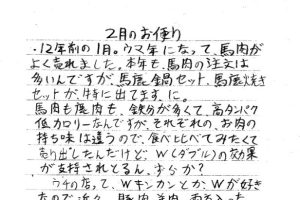 2月のお便り
・12年前の1月。ウマ年になって、馬肉が
よく売れました。本年も、馬肉の注文は
多いんですが、馬鹿鍋セット、馬鹿焼き
セットが、特に出てます、に。
馬肉も鹿肉も、鉄分が多くて、高タンパク
低カロリーなんですが、それぞれの、お肉の
持ち味は違うので、食べ比べてみたくて
売り出したんだけど、W(ダブル)の効果
が支持されてるん、すらか?
ウチの店って、Wキンカンとか、Wが好き